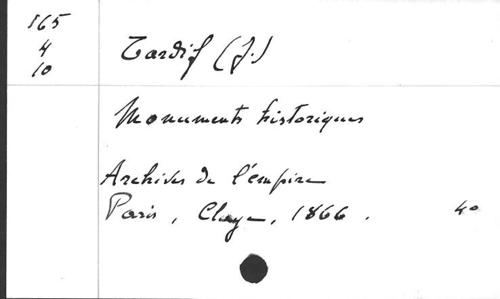 565
4
10
Tardif (J.)
Monuments historiques
Archives de l'empire
Paris, Claye, 1866. 4o